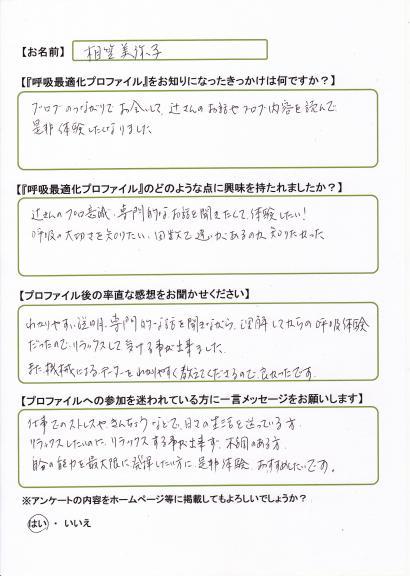 【お名前】 相笠美弥子
【『呼吸最適化プロファイル』をお知りになったきっかけは何ですか？】
ブログのつながりでお会いして、辻さんのお話やブログ内容を読んで
是非体験したくなりました。
【『呼吸最適化プロファイル』のどのような点に興味を持たれましたか？】
辻さんのプロ意識、専門的なお話を聞きたくて、体験したい！
呼吸の大切さを知りたい、回数で違いがあるのか知りたかった
【プロファイル後の率直な感想をお聞かせください】
わかりやすい説明、専門的な話を聞きながら、理解してからの呼吸体験
だったので、リラックスして受ける事が出来ました。
また、機械によるデーターをわかりやすく教えてくださるので、良かったです。
【プロファイルへの参加を迷われている方に一言メッセージをお願いします】
仕事でのストレスやきんちょうなどで、日々の生活を送っている方、
リラックスしたいのに、リラックスする事が出来ず、不調のある方、
自分の能力を最大限に発揮したい方に、是非体験、おすすめしたいです。
※アンケートの内容をホームページ等に掲載してもよろしいでしょうか？
はい ・ いいえ